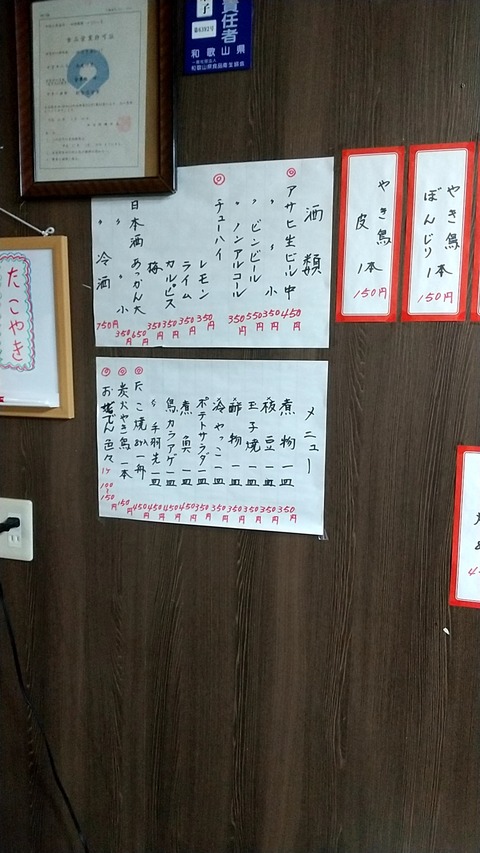 食品営業許可証
責任者
和歌山県
酒類
アサヒ生ビル中 450円
〃 〃 小 350円
〃 ビンビール 550円
〃 ノンアルコール 350円
チューハイ
レモン 350円
ライム 350円
カルピス 350円
梅 350円
日本酒 あつかん大 650円
〃 〃 小 350円
〃 冷酒 750円
やき鳥
皮 1本
150円
やき鳥
ぼんじり 1本
150円
たこやき
メニュー
煮物 一皿 350円
枝豆 一皿 350円
玉子焼 一皿 350円
酢物 一皿 350円
冷やっこ 一皿 350円
ポテトサラダ 一皿 350円
煮魚 一皿 450円
鳥カラアゲ 一皿 450円
〃 手羽先 一皿 450円
たこ焼 8ケ 一舟 450円
炭火やき鳥 一本 150円
おでん 色々 1ケ 100〜150円